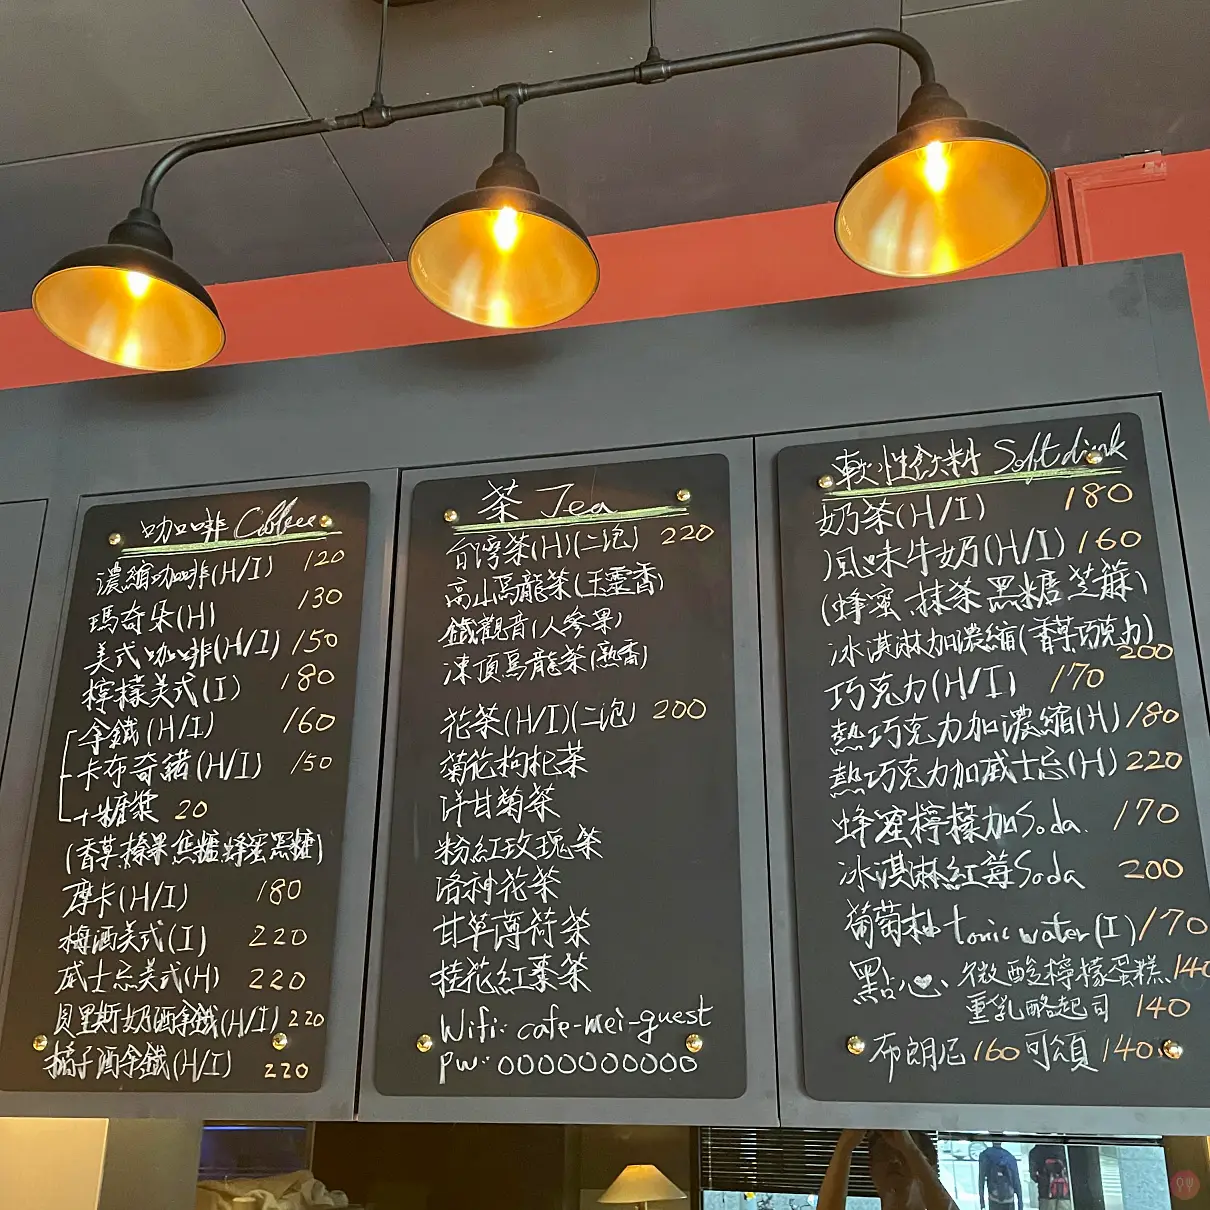 咖啡 Coffee
濃縮咖啡(H/I) 120
瑪奇朵(H) 130
美式咖啡(H/I) 150
檸檬美式(I) 180
拿鐵(H/I) 160
卡布奇諾(H/I) 150
+糖漿 20
(香草.榛果.焦糖.蜂蜜.黑糖)
摩卡(H/I) 180
梅酒美式(I) 220
威士忌美式(H) 220
貝里斯奶酒拿鐵(H/I) 220
橘子酒拿鐵(H/I) 220
茶 Tea
台灣茶(H)(二泡) 220
高山烏龍茶(玉靈香)
鐵觀音(人參果)
凍頂烏龍茶(熟香)
花茶(H/I)(二泡) 200
菊花枸杞茶
洋甘菊茶
粉紅玫瑰茶
洛神花茶
甘草薄荷茶
桂花紅棗茶
Wifi: cafe-mei-guest
pw: 0000000000
軟性飲料 Soft drink
奶茶(H/I) 180
風味牛奶(H/I) 160
(蜂蜜.抹茶.黑糖.芝麻)
冰淇淋加濃縮(香草巧克力) 200
巧克力(H/I) 170
熱巧克力加濃縮(H) 180
熱巧克力加威士忌(H) 220
蜂蜜檸檬加Soda 170
冰淇淋紅莓Soda 200
葡萄柚tonic water(I) 170
點心 微酸檸檬蛋糕 140
重乳酪起司 140
布朗尼 160 可頌 140